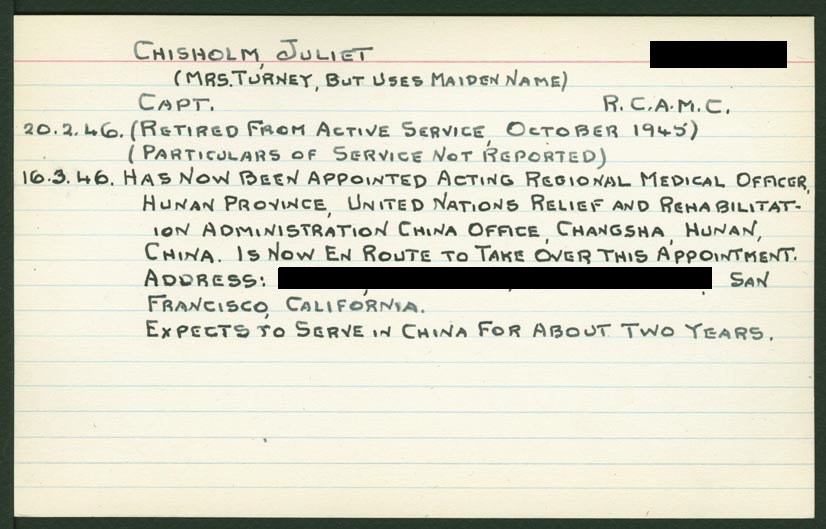 CHISHOLM, JULIET
(MRS. TURNEY, BUT USES MAIDEN NAME)
CAPT. R.C.A.M.C.
20.2.46. (RETIRED FROM ACTIVE SERVICE, OCTOBER 1945)
(PARTICULARS OF SERVICE NOT REPORTED)
16.3.46. HAS NOW BEEN APPOINTED ACTING REGIONAL MEDICAL OFFICER,
HUNAN PROVINCE, UNITED NATIONS RELIEF AND REHABILITAT-
ION ADMINISTRATION CHINA OFFICE, CHANGSHA, HUNAN,
CHINA. IS NOW EN ROUTE TO TAKE OVER THIS APPOINTMENT.
ADDRESS: SAN
FRANCISCO, CALIFORNIA.
EXPECTS TO SERVE IN CHINA FOR ABOUT TWO YEARS.